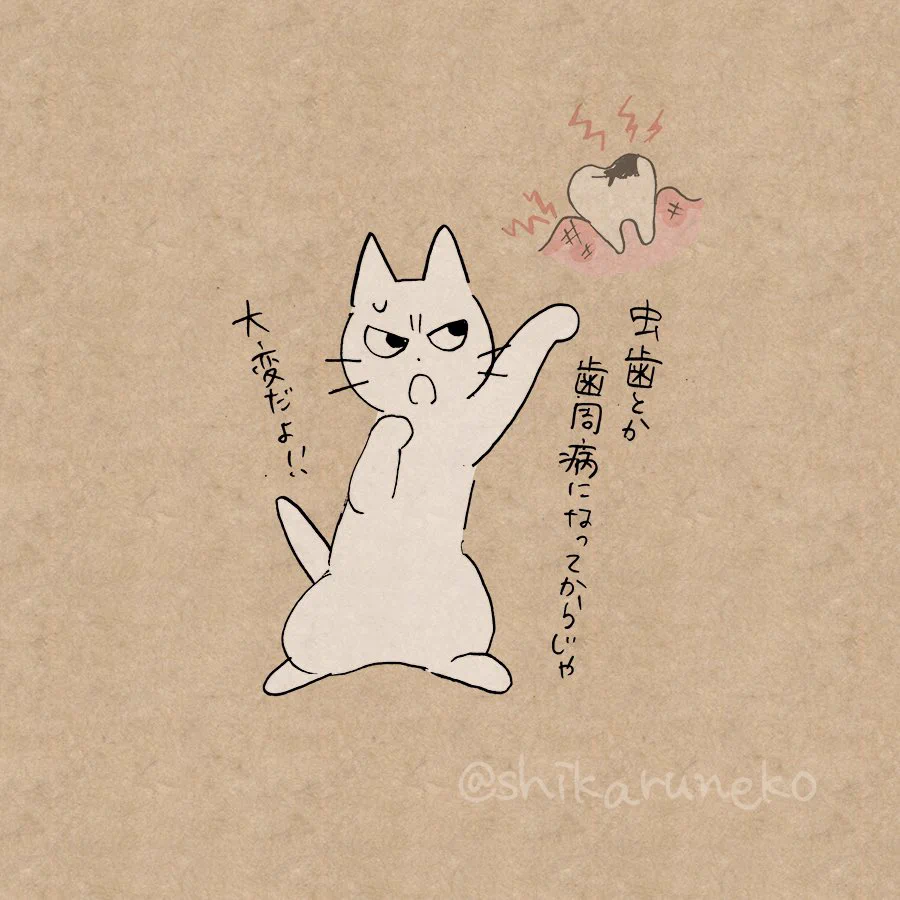 虫歯とか
歯周病になってからじゃ
大変だよ!!
@shikaruneko